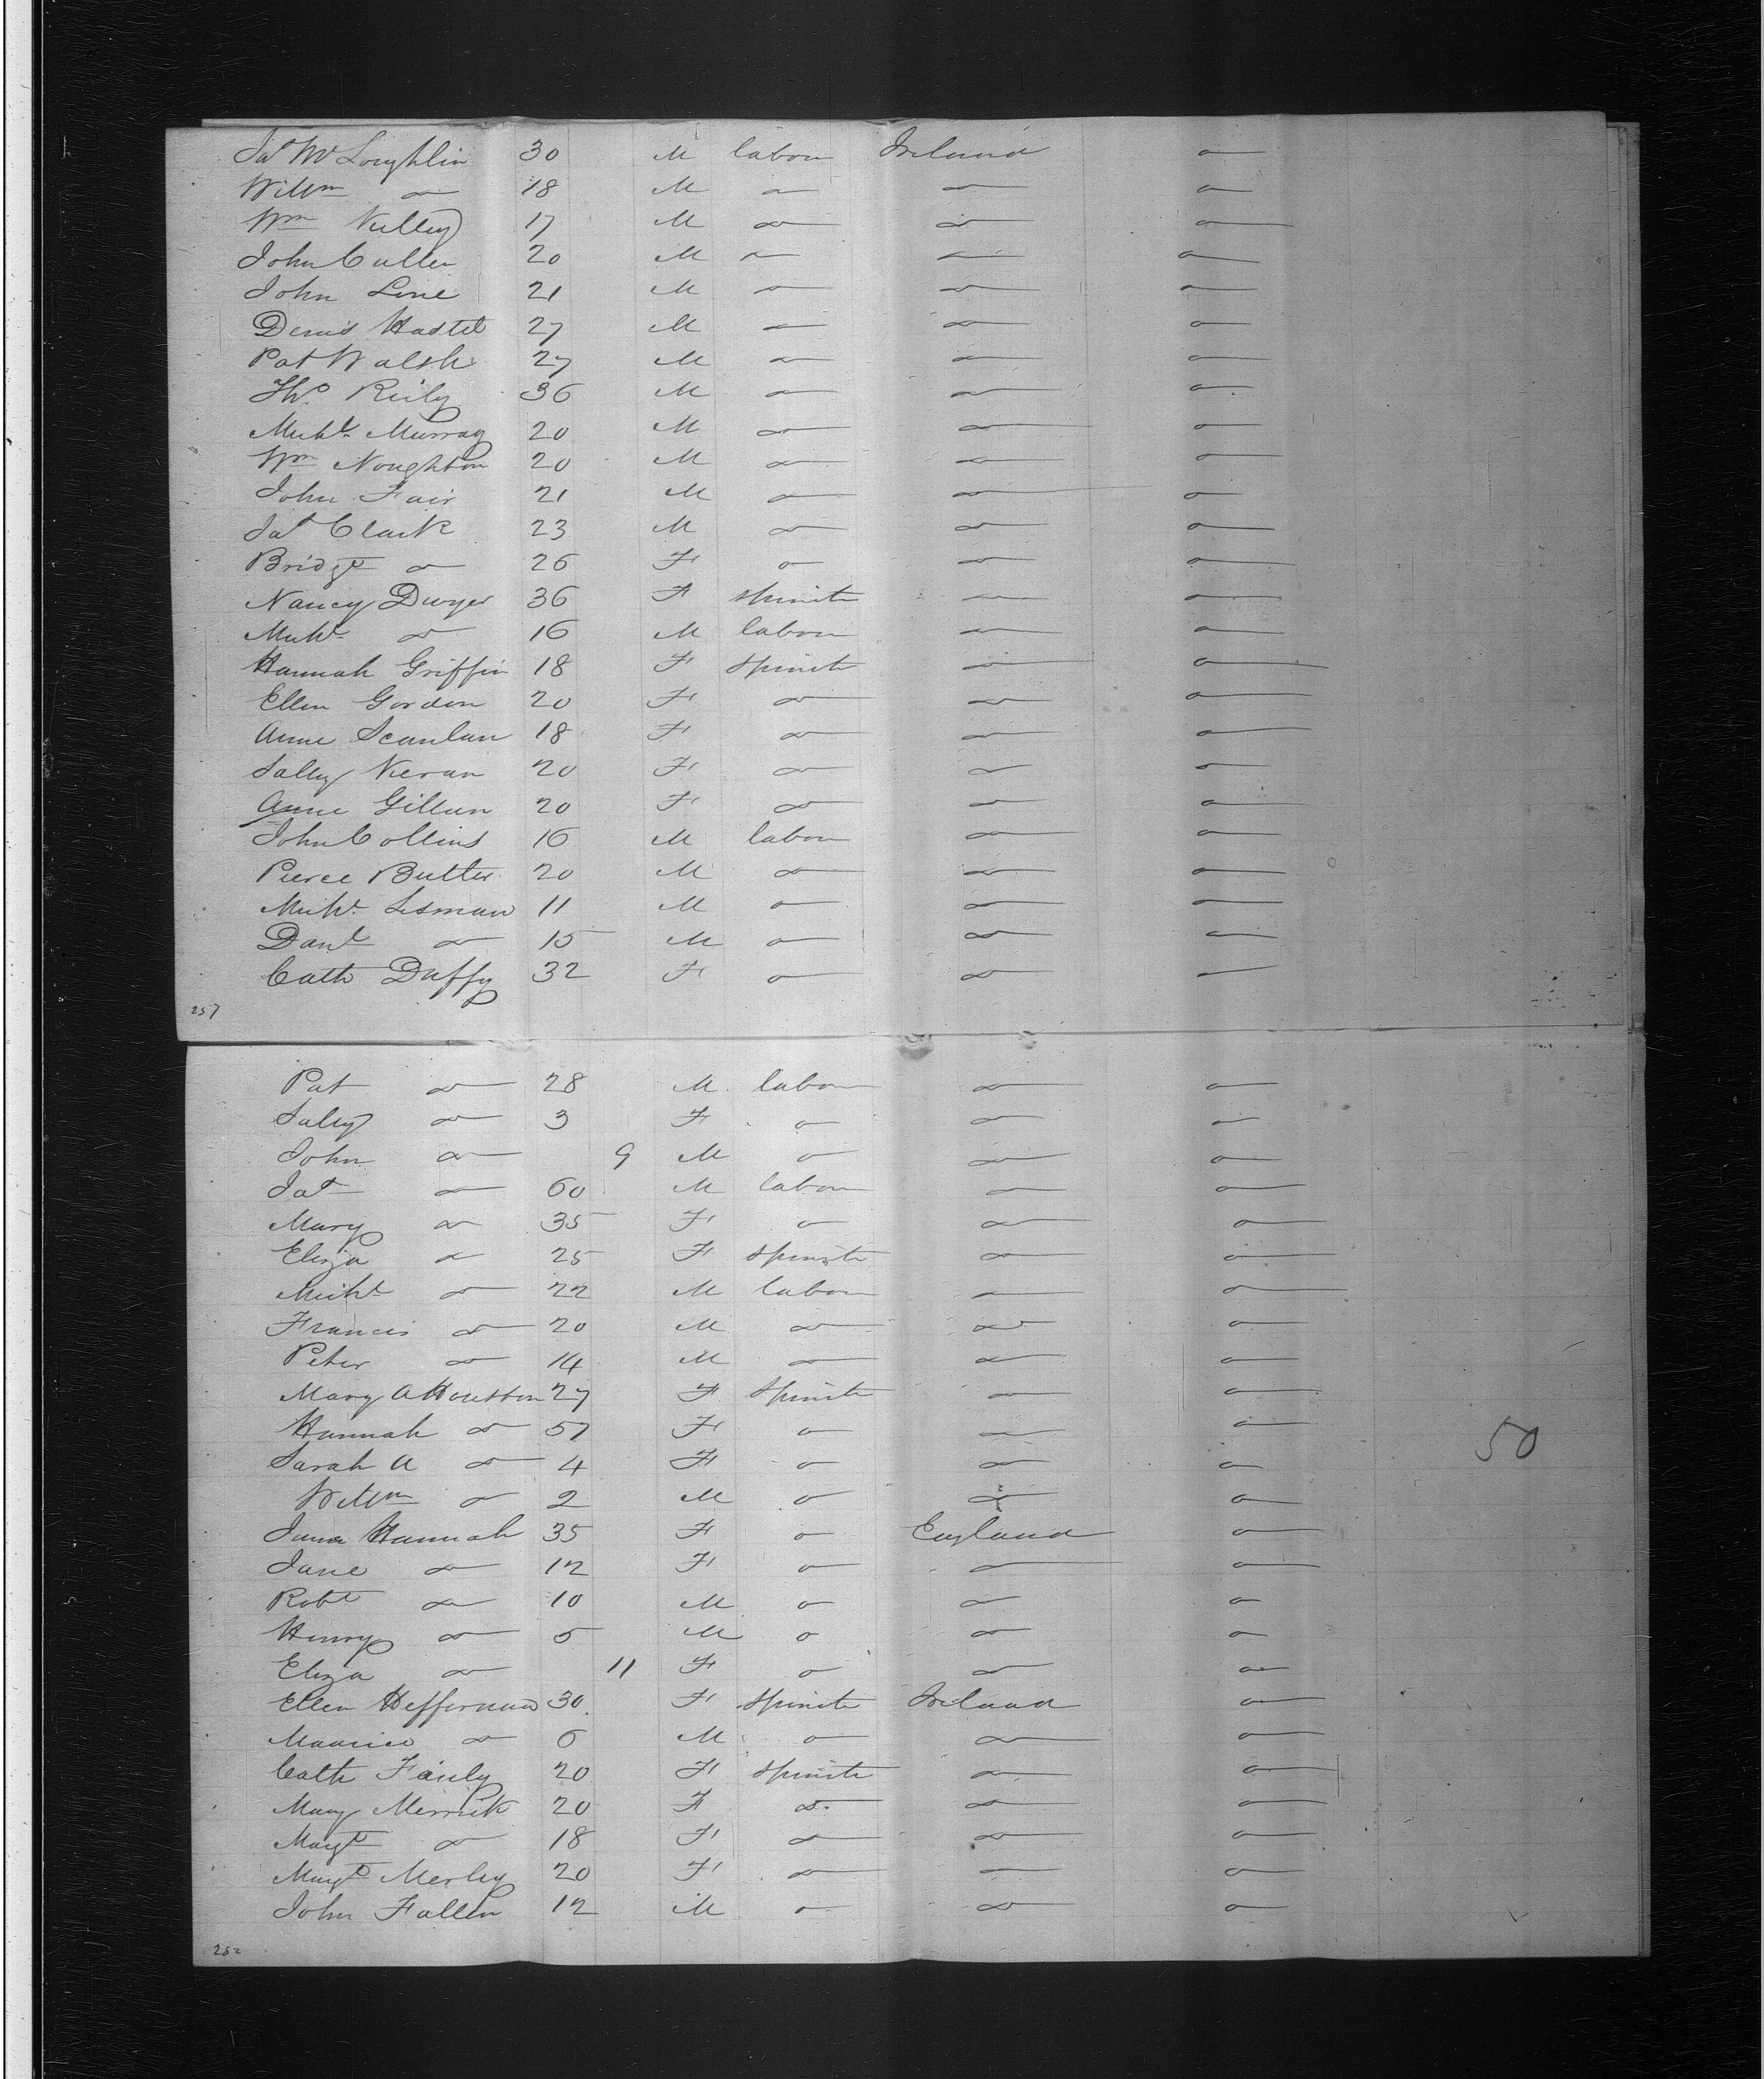 Jas McLoughlin 30 M labor Ireland —
Willm do 18 M do do —
Wm Kelley 17 M do do —
John Cullen 20 M do do —
John Line 21 M do do —
Denis Hastel 27 M do do —
Pat Walsh 27 M do do —
Thos. Reily 36 M do do —
Michl. Murray 20 M do do —
Wm Noughton 20 M do do —
John Fair 21 M do do —
Jas Clark 23 M do do —
Bridgt do 26 F — do —
Nancy Dwyer 36 F spinstr do —
Michl do 16 M labor do —
Hannah Griffin 18 F spinstr do —
Ellen Gordon 20 F do do —
Anne Scanlan 18 F do do —
Sally Keran 20 F do do —
Anne Gillan 20 F do do —
John Collins 16 M labor do —
Pierce Butler 20 M do do —
Michl. Lisman 11 M — do —
Danl do 15 M — do —
Cath Duffy 32 F — do —
257
Pat do 28 M labor do —
Sally do 3 F — do —
John do 9 M — do —
Jas do 60 M labor do —
Mary do 35 F — do —
Eliza do 25 F spinstr do —
Michl do 22 M labor do —
Francis do 20 M do do —
Peter do 14 M do do —
Mary A Houston 27 F spinstr do —
Hannah do 57 F — do —
Sarah A do 4 F — do —
Willm do 2 M — do —
Hannah 35 F — England —
Jane do 12 F — do —
Robt do 10 M — do —
Henry do 5 M — do —
Eliza do 11 F — do —
Ellen Heffernan 30 F spinstr Ireland —
Maurice do 6 M — do —
Cath Fauly 20 F spinstr do —
Mary Merrick 20 F do do —
Margt do 18 F do do —
Margt Merley 20 F do do —
John Fallen 12 M — do —
50
252